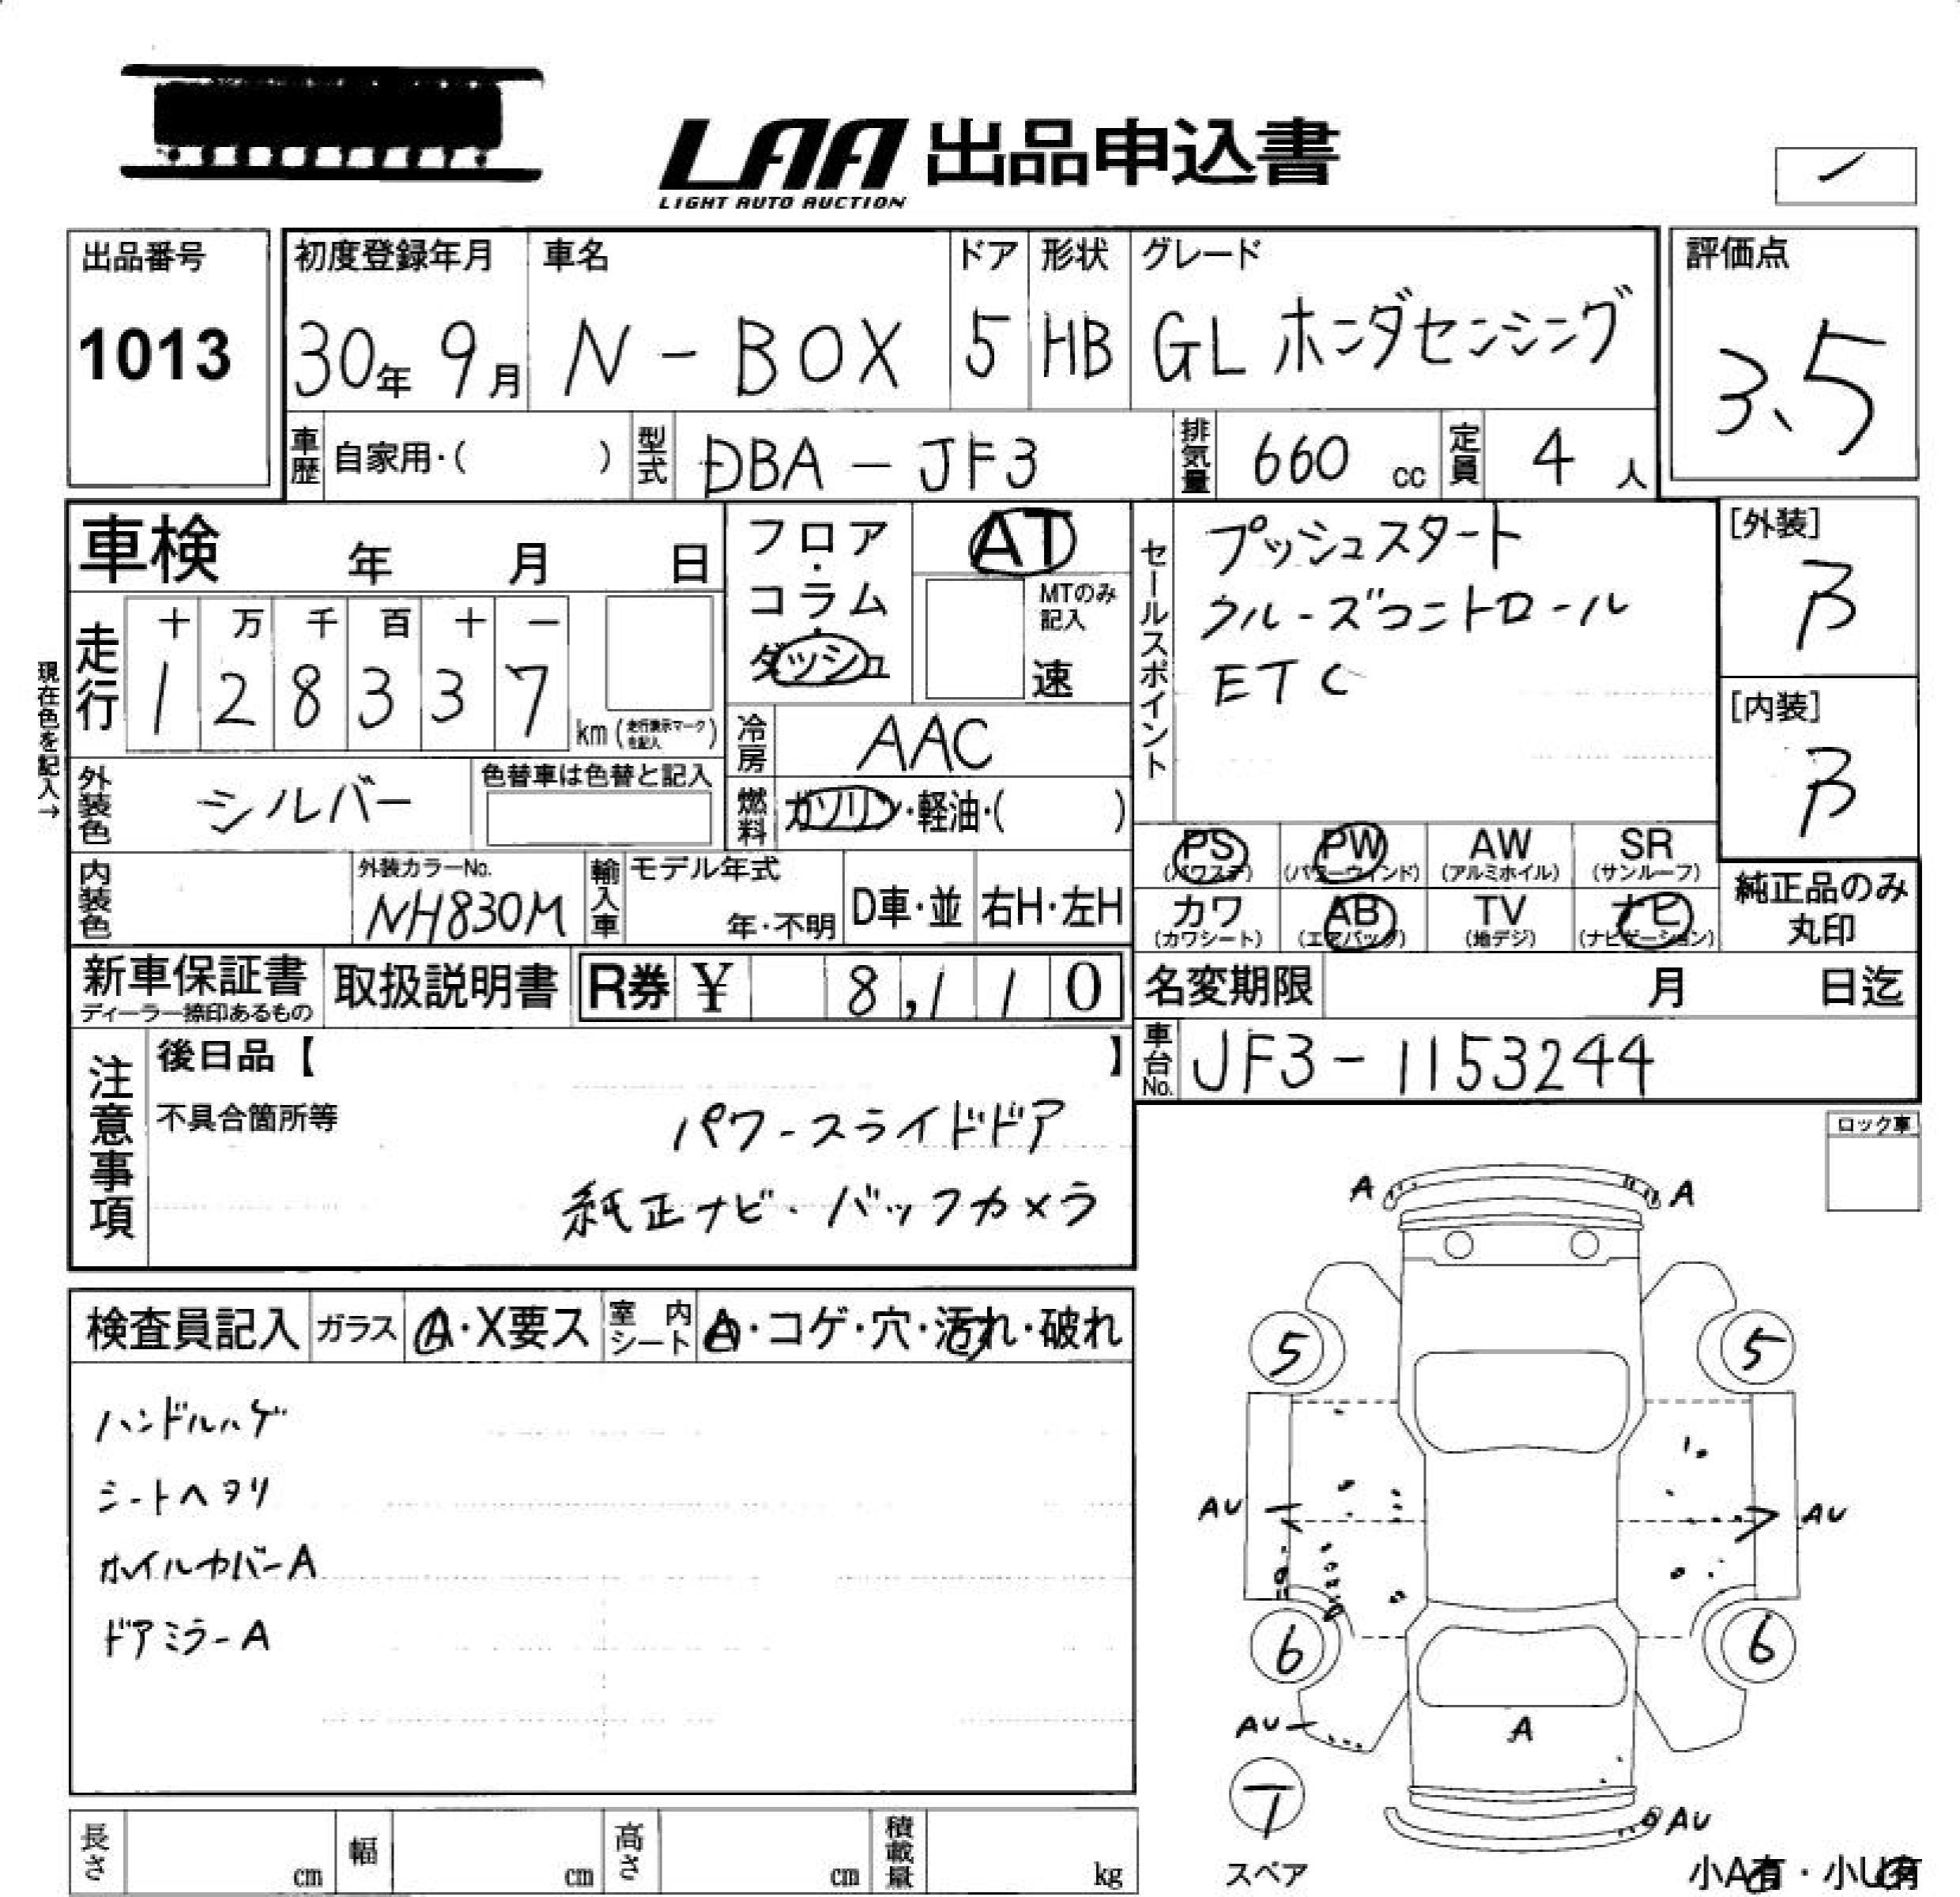 LAA 出品申込書
LIGHT AUTO AUCTION
出品番号
1013
初度登録年月
30年 9月
車名
N - BOX
ドア
5
形状
HB
グレード
GL ホンダセンシング
評価点
3.5
車歴 自家用・( )
型式 DBA - JF3
排気量 660 cc
定員 4 人
車検 年 月 日
フロア・コラム・ダッシュ
AT
MTのみ記入
速
セールスポイント
プッシュスタート
クルーズコントロール
ETC
[外装]
B
[内装]
B
現在色を記入→
走行
十 万 千 百 十 一
1 2 8 3 3 7
km (走行表示マークを記入)
冷房 AAC
外装色 シルバー
色替車は色替と記入
燃料 ガソリン・軽油・( )
PS (パワステ)
PW (パワーウインド)
AW (アルミホイル)
SR (サンルーフ)
内装色
外装カラーNo.
NH830M
輸入車
モデル年式
年・不明
D車・並
右H・左H
カワ (カワシート)
AB (エアバッグ)
TV (地デジ)
ナビ (ナビゲーション)
純正品のみ丸印
新車保証書
ディーラー捺印あるもの
取扱説明書
R券 ¥ 8,110
名変期限 月 日迄
車台No. JF3-1153244
注意事項
後日品【 】
不具合箇所等
パワースライドドア
純正ナビ・バックカメラ
ロック車
検査員記入
ガラス A・X要ス
室内シート A・コゲ・穴・汚れ・破れ
ハンドルハゲ
シートヘタリ
ホイルカバーA
ドアミラーA
A A
5 5
AU AU
6 6
AU A
AU
スペア
小A有・小U有
長さ cm
幅 cm
高さ cm
積載量 kg